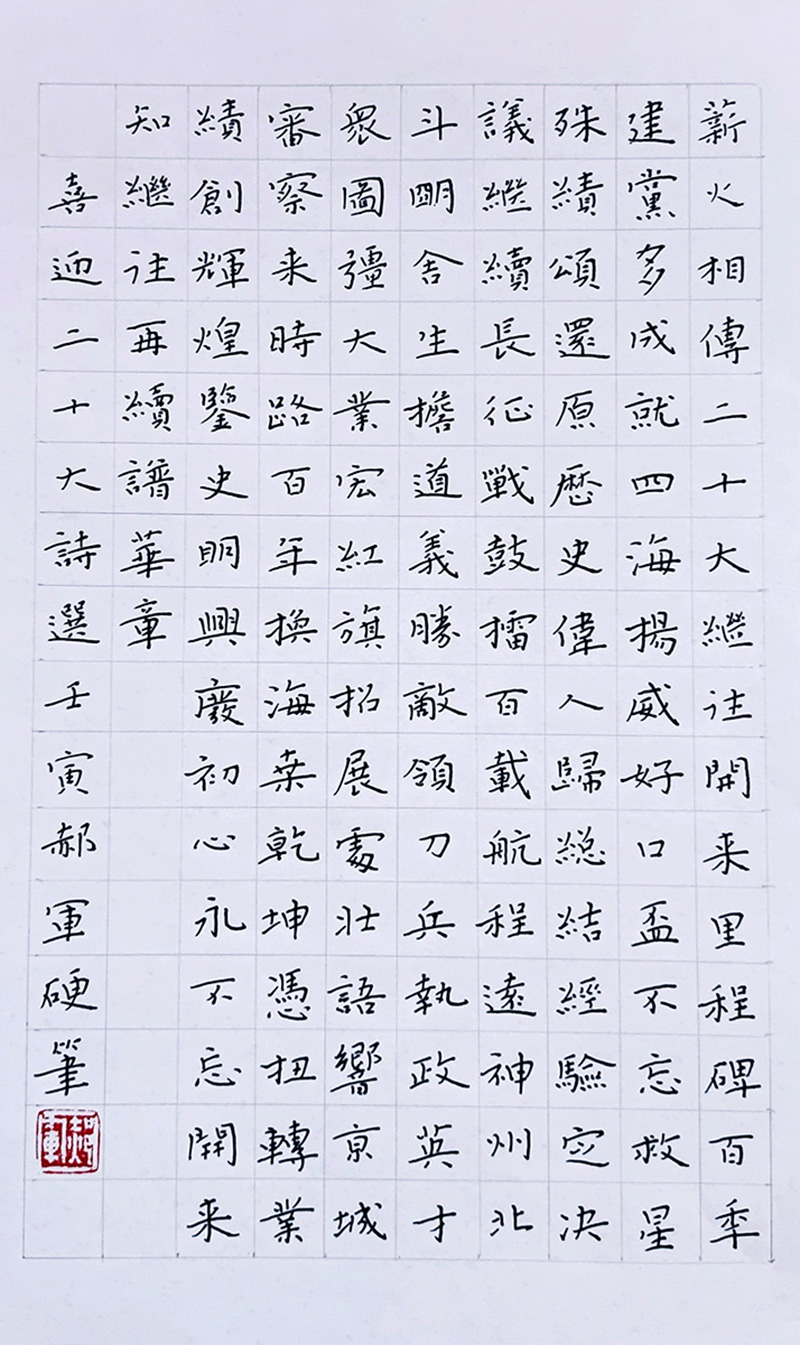 薪火相傳二十大繼往開来里程碑百年
建黨多成就四海揚威好口盃不忘救星
殊績頌還原歷史偉人歸總結經驗定決
議繼續長征戰鼓擂百載航程遠神州北
斗明舍生擔道義勝敵領刀兵執政英才
衆圖彊大業宏紅旗招展處壮語響京城
審察来時路百年換海桑乾坤憑扭轉業
績創輝煌鑒史明興廢初心永不忘開来
知繼往再續譜華章
喜迎二十大詩選壬寅郝軍硬筆
郝軍